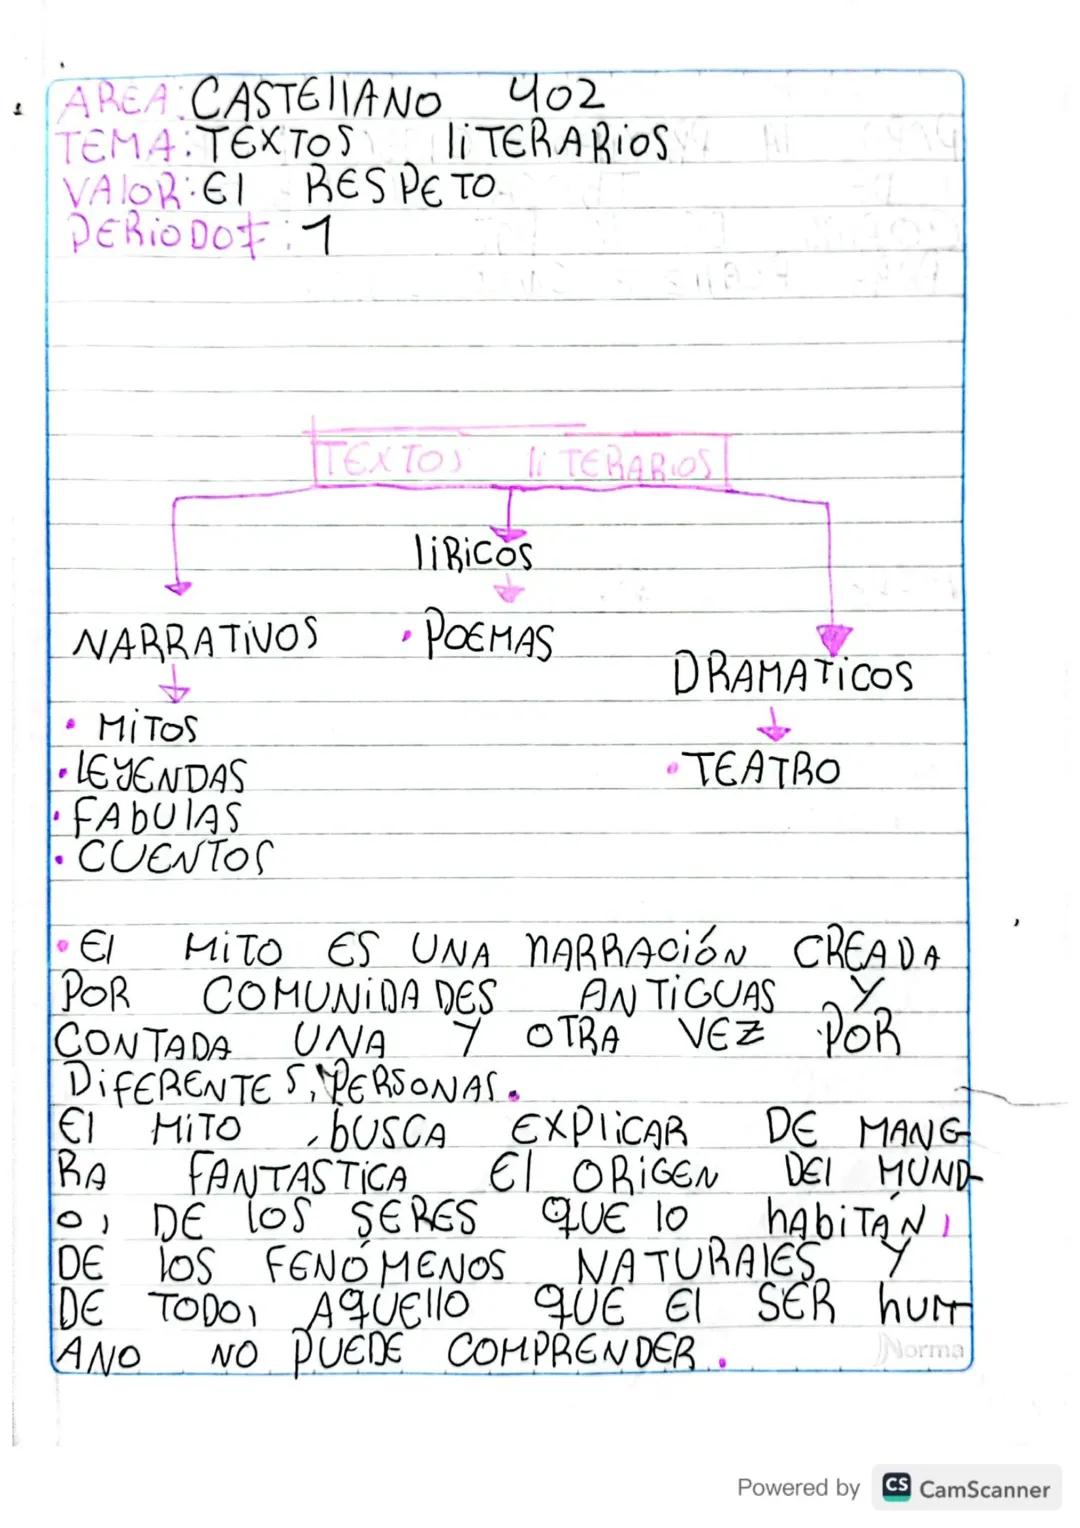 AREA: CASTEllANO 402
TEMA: TEXTOS liTERARiOS
VAlOR: El RESPETO
PERiODO#: 1
TEXTOS liTERARiOS
liRiCOS
NARRATiVOS • POEMAS
DRAMATiCOS
• MiTOS
• LEYENDAS • TEATRO
• FAbUlAS
• CUENTOS
• El MiTO ES UNA NARRACiÓN CREADA
POR COMUNiDADES ANTiGUAS Y
CONTADA UNA Y OTRA VEZ POR
DiFERENTES, PERSONAS.
El MiTO , bUSCA EXPliCAR DE MANE
RA FANTASTiCA El ORiGEN DEl MUND
O, DE lOS SERES QUE lO hAbiTÁN,
DE lOS FENÓMENOS NATURAlES Y
DE TODO, AQUEllO QUE El SER hUM
ANO NO PUEDE COMPRENDER.
Norma
Powered by CS CamScanner